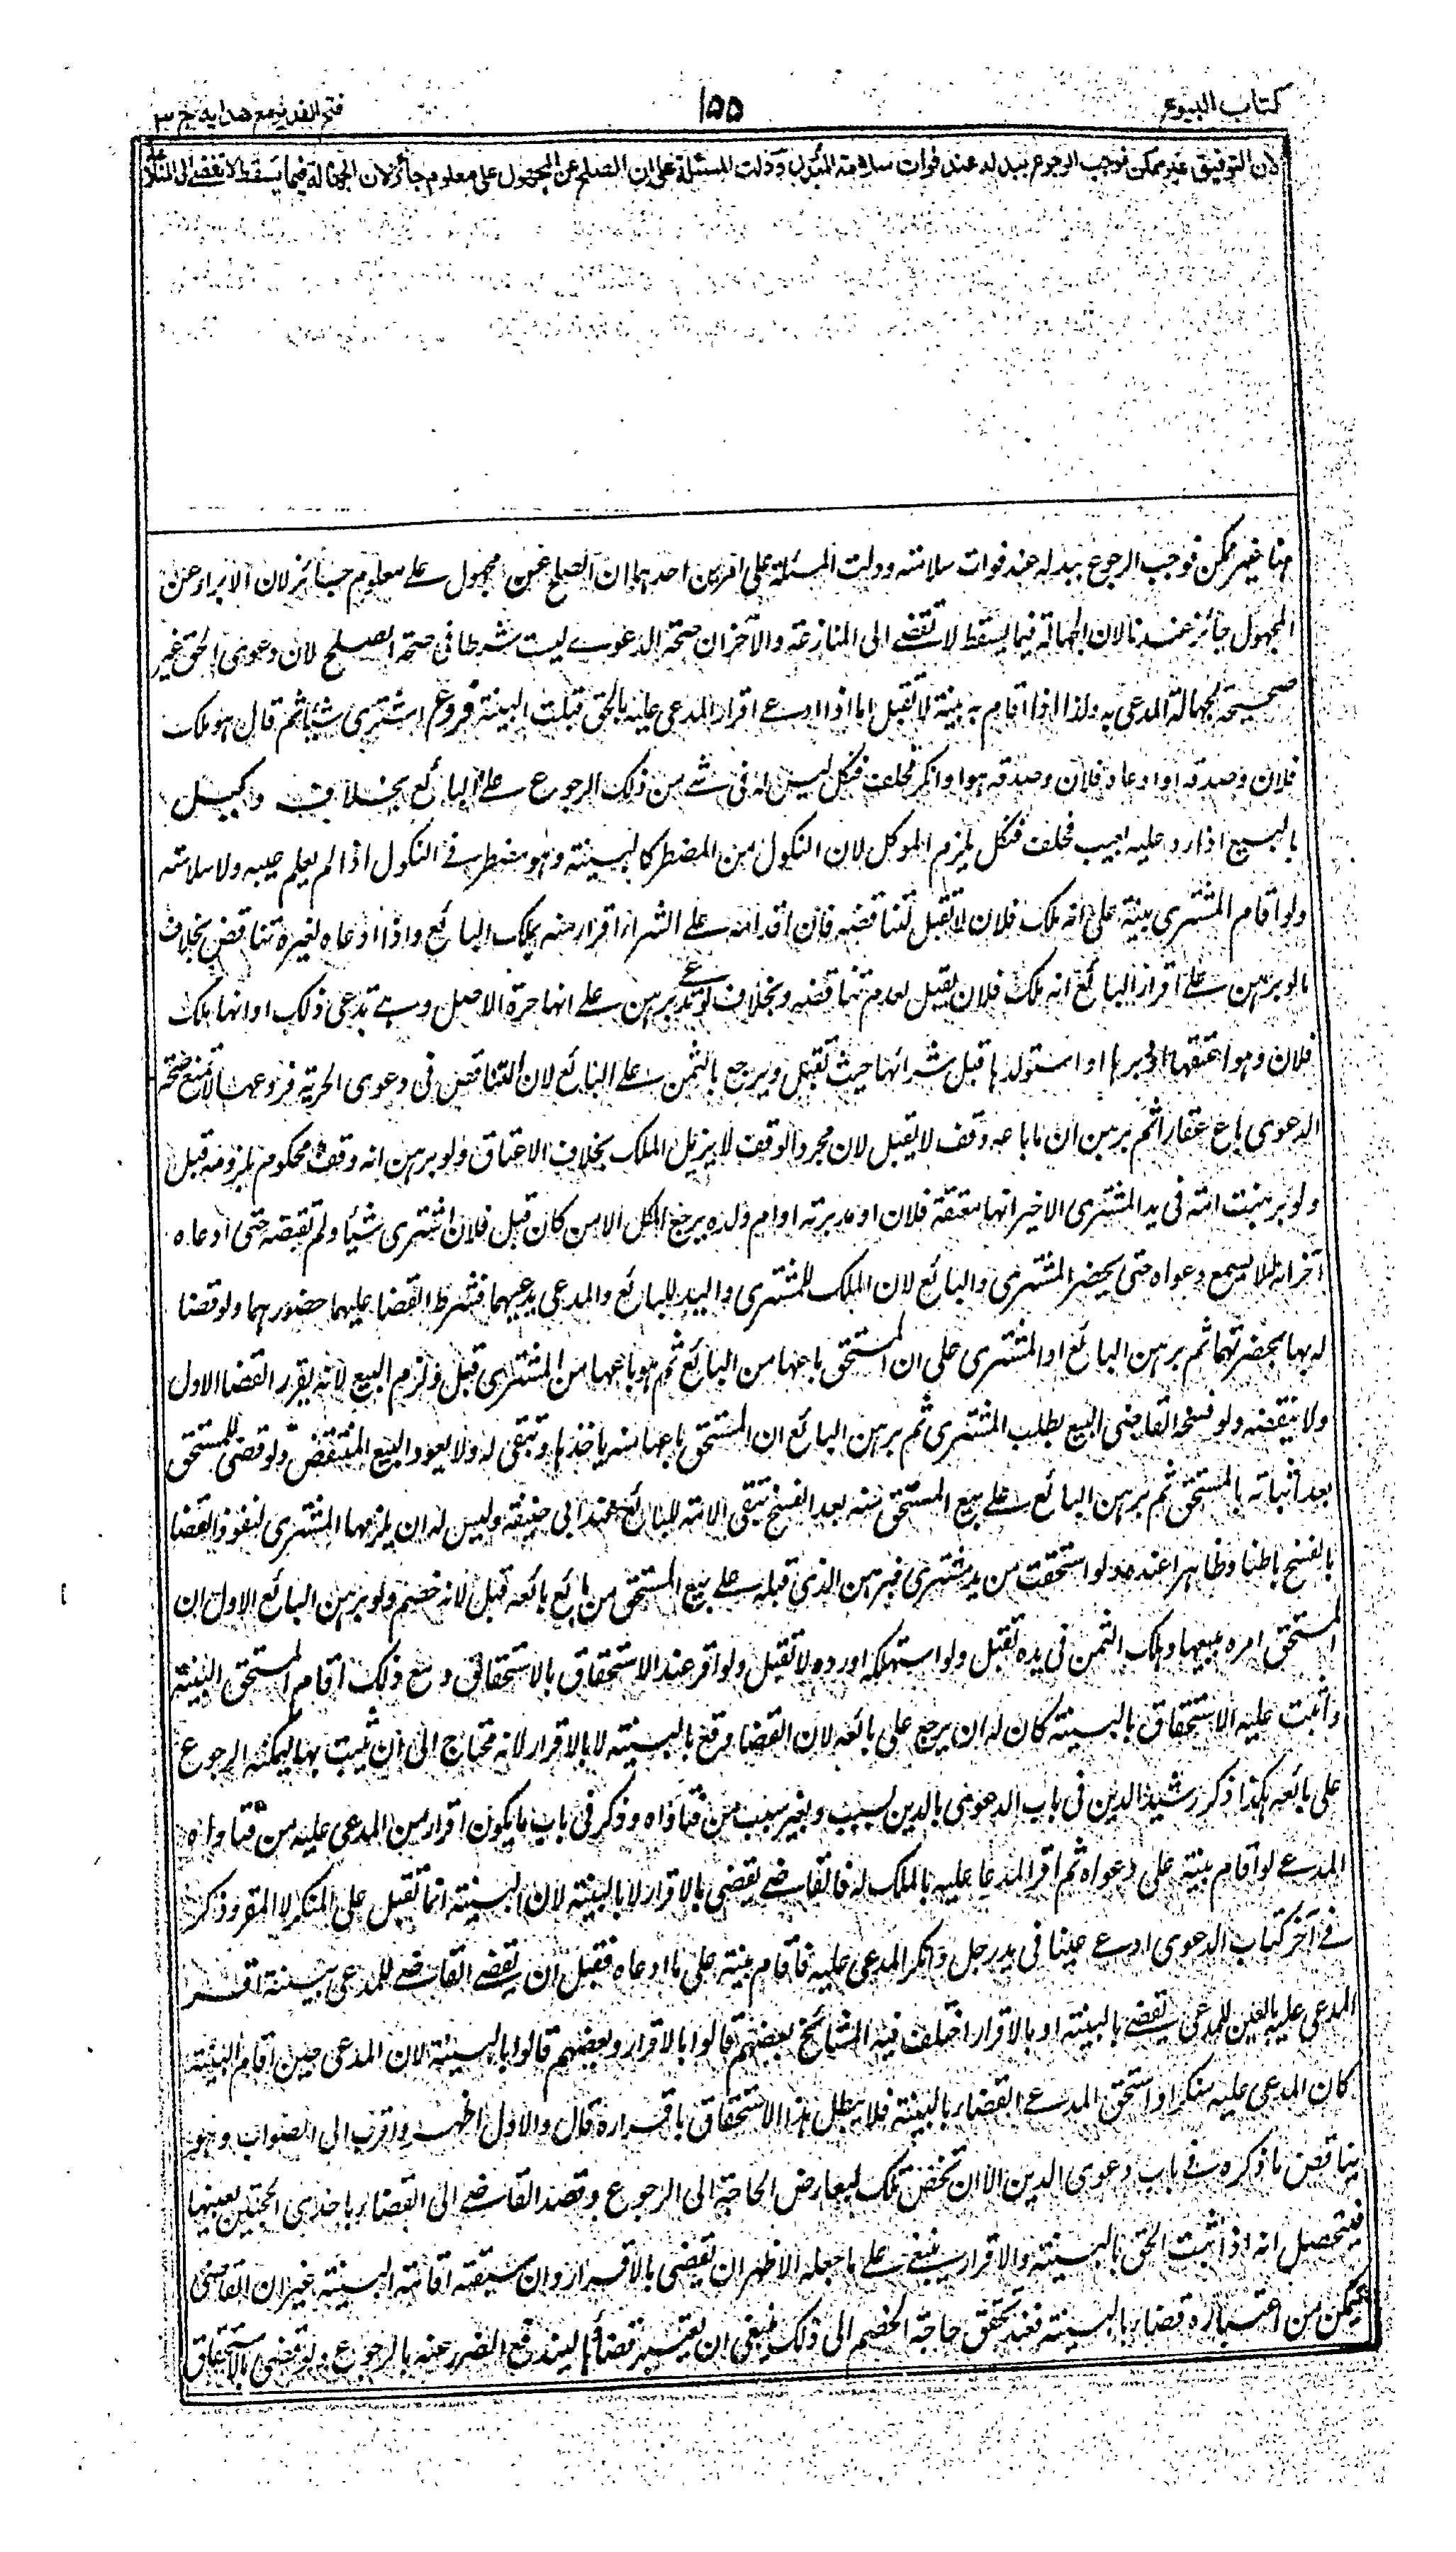 كتاب البيوع
١٥٥
فتح القدير مع هدايه ج ٣
لان التوفيق غير ممكن فوجب الرجوع ببدله عند فوات سلامة المبدل ودلت المسئلة على ان الصلح عن المجهول على معلوم جائز لان الجهالة فيما يسقط لا تفضي الى المنازعة
هنا غير ممكن فوجب الرجوع ببدله عند فوات سلامته ودلت المسئلة على امرين احدهما ان الصلح عن مجهول على معلوم جائز لان الابراء عن
المجهول جائز عندنا لان الجهالة فيما يسقط لا تفضے الى المنازعة والآخر ان صحة الدعوے ليست شرطا فى صحة الصلح لان دعوى الحق غير
صحيحة لجهالة المدعى به ولذا اذا اقام به بينة لا تقبل اما اذا ادعے اقرار المدعى عليه بالحق قبلت البينة فروع اشترى شيئا ثم قال هو ملك
فلان وصدقه او ادعاه فلان وصدقه هو او انكر فحلف فنكل ليس له فى شے من ذلك الرجوع على البائع بخلاف وكيل
بالبيع اذا رد عليه بعيب فحلف فنكل يلزم الموكل لان النكول من المضطر كالبينة وهو مضطر فے النكول اذا لم يعلم عيبه ولا سلامته
ولو اقام المشترى بينة على انه ملك فلان لا تقبل لتناقضه فان اقدامه على الشراء اقرار منه بملك البائع واذا ادعاه لغيره تناقض بخلاف
ما لو برهن على اقرار البائع انه ملك فلان يقبل لعدم تناقضه وبخلاف لو برهن على انها حرة الاصل وهے تدعى ذلك او انها ملك
فلان وهو اعتقها او دبرها او استولدها قبل شرائها حيث تقبل ويرجع بالثمن على البائع لان التناقض فى دعوى الحرية وفروعها لا تمنع صحة
الدعوى باع عقارا ثم برهن ان ما باعه وقف لا يقبل لان مجرد الوقف لا يزيل الملك بخلاف الاعتاق ولو برهن انه وقف محكوم بلزومه قبل
ولو برهنت امة فى يد المشترى الاخير انها معتقة فلان او مدبرته او ام ولده يرجع الكل الا من كان قبل فلان اشترى شيئا ولم يقبضه حتى ادعاه
آخر انه له لا يسمع دعواه حتى يحضر المشترى والبائع لان الملك للمشترى واليد للبائع والمدعى يدعيهما فشرط القضا عليهما حضورهما ولو قضا
له بها بحضرتهما ثم برهن البائع او المشترى على ان المستحق باعها من البائع ثم هو باعها من المشترى قبل ولزم البيع لانه يقرر القضا الاول
ولا ينقضه ولو فسخ القاضى البيع بطلب المشترى ثم برهن البائع ان المستحق باعها منه ياخذها وتبقى له ولا يعود البيع المنتقض ولو قضى للمستحق
بعد اثباته بالمستحق ثم برهن البائع على بيع المستحق منه بعد الفسخ تبقى الامة للبائع عند ابى حنيفة وليس له ان يلزمها المشترى لنفوذ القضا
بالفسخ باطنا وظاهرا عنده ولو استحقت من يد مشترى فبرهن الذى قبله على بيع المستحق من بائع بائعه قبل لانه خصم ولو برهن البائع الاول ان
المستحق امره ببيعها وهلك الثمن فى يده تقبل ولو استهلكه او رده لا تقبل ولو اقر عند الاستحقاق بالاستحقاق ومع ذلك اقام المستحق البينة
واثبت عليه الاستحقاق بالبينة كان له ان يرجع على بائعه لان القضا وقع بالبينة لا بالاقرار لانه محتاج الى ان يثبت بها ليمكنه الرجوع
على بائعه هكذا ذكر رشيد الدين فى باب الدعوى بالدين بسبب وبغير سبب من فتاواه وذكر فى باب ما يكون اقرار من المدعى عليه من فتاواه
المدعے لو اقام بينة على دعواه ثم اقر المدعا عليه بالملك له فالقاضے يقضى بالاقرار لا بالبينة لان البينة انما تقبل على المنكر لا المقر وذكر
فے آخر كتاب الدعوى ادعے عينا فى يد رجل وانكر المدعى عليه فاقام بينة على ما ادعاه فقبل ان يقضے القاضے للمدعى ببينة اقر
المدعى عليه بالعين للمدعى يقضے بالبينة او بالاقرار اختلف فيه المشائخ بعضهم قالوا بالاقرار وبعضهم قالوا بالبينة لان المدعى حين اقام البينة
كان المدعى عليه منكرا واستحق المدعے القضاء بالبينة فلا يبطل هذا الاستحقاق باقراره قال والاول اظهر واقرب الى الصواب وهو
يناقض ما ذكره فے باب دعوى الدين الا ان تخص تلك بعارض الحاجة الى الرجوع وقصد القاضے الى القضاء باحدى الحجتين بعينها
فيتحصل انه اذا ثبت الحق بالبينة والاقرار ينبغے على ما جعله الاظهر ان يقضى بالاقرار وان سبقته اقامة البينة غير ان القاضى
يتمكن من اعتباره قضاء بالبينة فعند تحقق حاجة الخصم الى ذلك ينبغى ان يعتبر قضاء بها ليندفع الضرر عنه بالرجوع ولو قضى بالاستحقاق